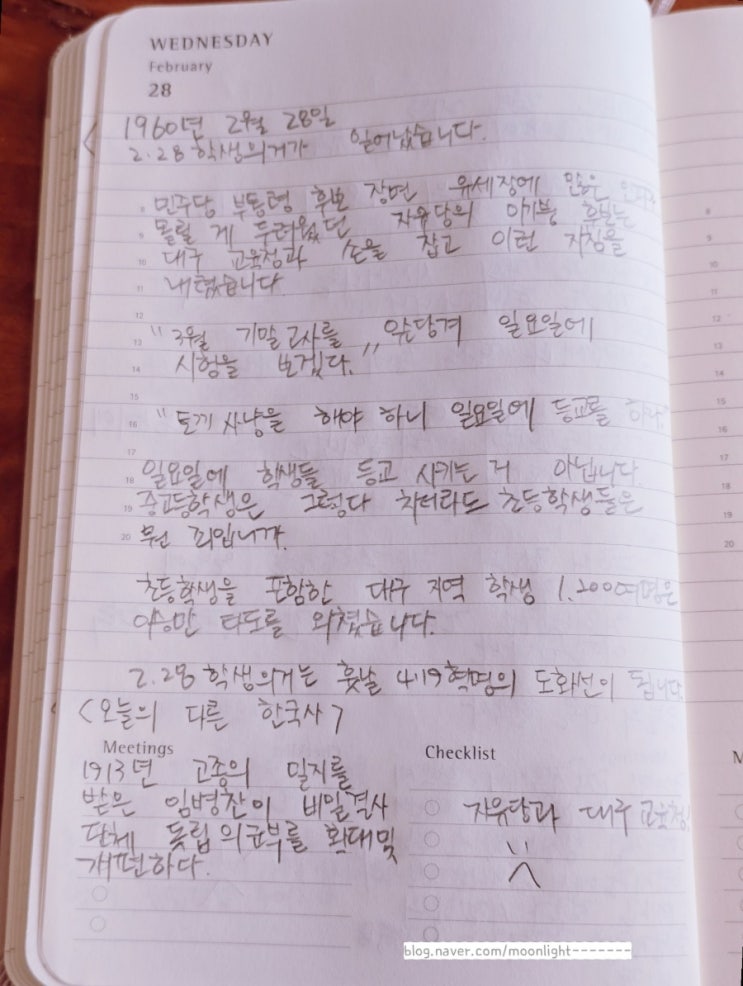 WEDNESDAY
February
28
1960년 2월 28일
2.28 학생의거가 일어났습니다.
8 민주당 부통령 후보 장면 유세장에 많은
9 몰릴 게 두려웠던 자유당의 이기붕 후보는
10 대구 교육청과 손을 잡고 이런 지침을
11 내렸습니다.
12
13 "3월 기말고사를 앞당겨 일요일에
14 시험을 보겠다."
15
16 "토끼 사냥을 해야 하니 일요일에 등교를 하라"
17
18 일요일에 학생들 등교 시키는 거 아닙니다.
19 중고등학생은 그렇다 치더라도 초등학생들은
20 뭔 죄입니까.
초등학생을 포함한 대구 지역 학생 1,200여명은
이승만 타도를 외쳤습니다.
2.28 학생의거는 훗날 419혁명의 도화선이 됩니다
<오늘의 다른 한국사>
Meetings
1913년 고종의 밀지를
받은 임병찬이 비밀결사
단체 독립의군부를 확대 및
개편하다.
Checklist
자유당과 대구 교육청
blog.naver.com/moonlight-------
8
9
10
11
12
13
14
15
16
17
18
19
20
M